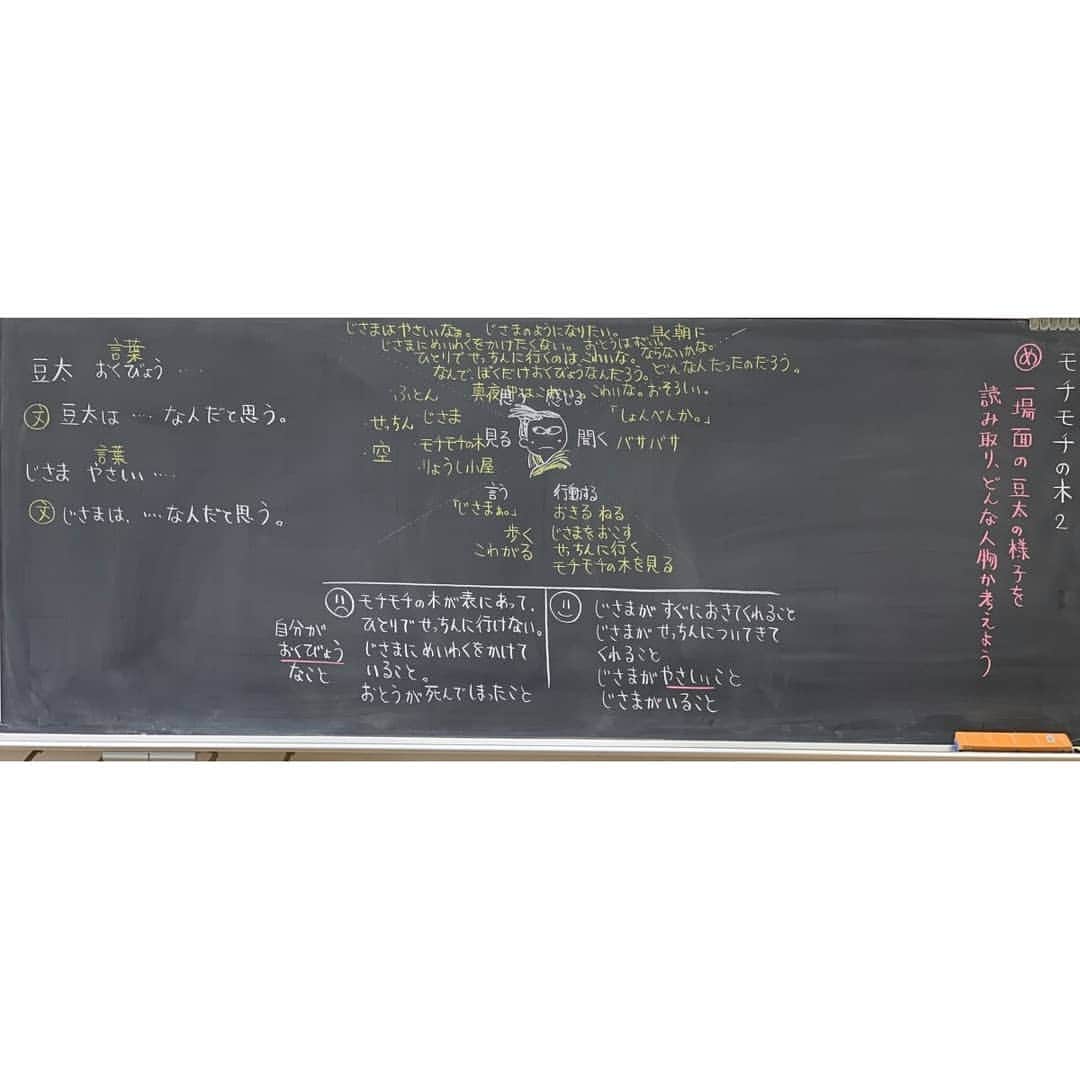 モチモチの木 2
め 一場面の豆太の様子を
読み取り、どんな人物か考えよう
じさまはやさしいなぁ。 じさまのようになりたい。 早く朝に
じさまにめいわくをかけたくない。 おとうは ならないかな。
ひとりでせっちんに行くのはこわいな。 どんな人だったのだろう。
なんで、ぼくだけおくびょうなんだろう。
真夜中はこわい。こわいな。おそろしい。
思う 感じる
ふとん
せっちん じさま
空 モチモチの木
りょうし小屋
見る
聞く
「しょんべんか。」
バサバサ
言う
「じさまぁ。」
歩く
こわがる
行動する
おきる ねる
じさまをおこす
せっちんに行く
モチモチの木を見る
じさまが すぐにおきてくれること
じさまが せっちんについてきて
くれること
じさまがやさしいこと
じさまがいること
モチモチの木が表にあって、
ひとりで せっちんに行けない。
じさまにめいわくをかけて
いること。
おとうが死んでしまったこと
自分が
おくびょう
なこと
言葉
豆太 おくびょう ‥‥
文 豆太は ‥‥ な人だと思う。
言葉
じさま やさしい ‥‥
文 じさまは、‥‥な人だと思う。